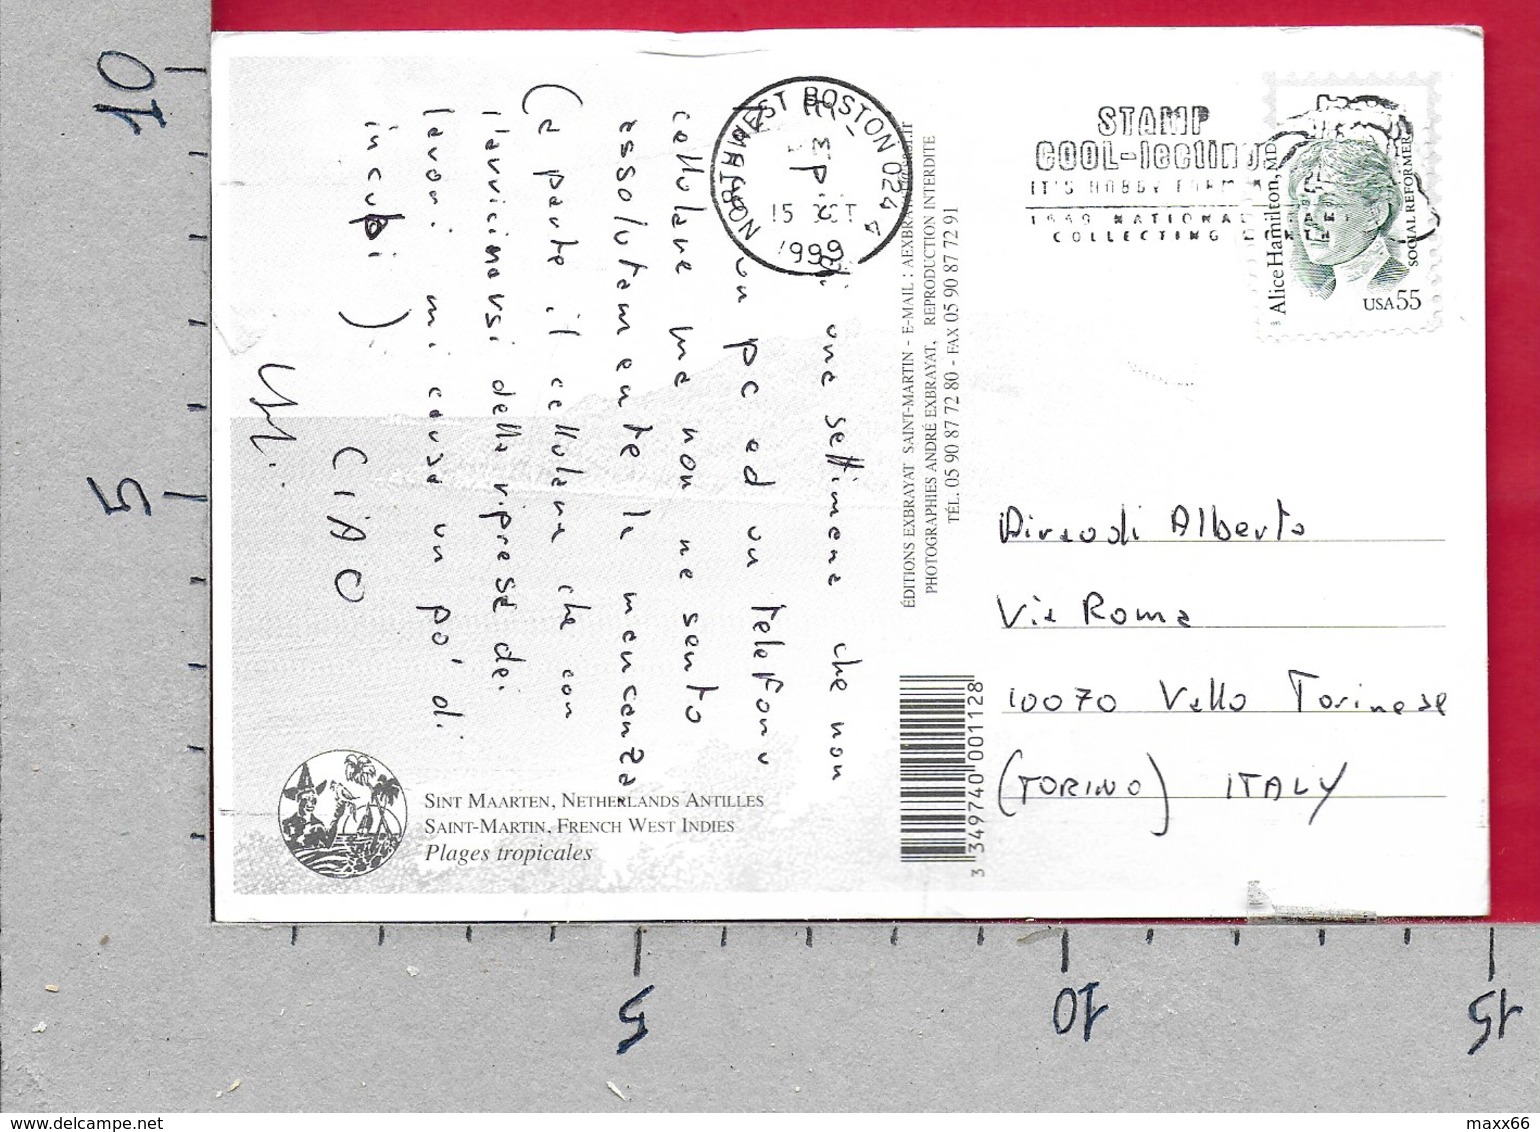 È una settimana che non
un pc ad un telefono
cellulare ma non ne sento
assolutamente la mancanza.
(a parte il cellulare che con
l'avvicinarsi della ripresa dei
lavori mi causa un po' di
incubi)
CIAO
SINT MAARTEN, NETHERLANDS ANTILLES
SAINT-MARTIN, FRENCH WEST INDIES
Plages tropicales
NORTHWEST BOSTON 024
15 OCT
1999
ÉDITIONS EXBRAYAT SAINT-MARTIN - E-MAIL : AEXBRAYAT
PHOTOGRAPHIES ANDRÉ EXBRAYAT, REPRODUCTION INTERDITE
TÉL. 05 90 87 72 80 - FAX 05 90 87 72 91
3 349740 001128
STAMP
COOL-lecting
IT'S HOBBY
1999 NATIONAL
COLLECTING
Alice Hamilton, MD
SOCIAL REFORMER
USA 55
Airaodi Alberto
Via Roma
10070 Vallo Torinese
(TORINO) ITALY
10
5
5
10
15
delcampe.net
maxx66